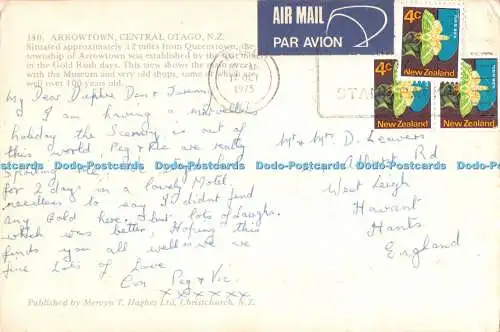 180. ARROWTOWN, CENTRAL OTAGO, N.Z.
Situated approximately 12 miles from Queenstown, the
township of Arrowtown was established by the
in the Gold Rush days. This view shows the main avenue
with the Museum and very old shops, some of
well over 100 years old.
AIR MAIL
PAR AVION
4c
New Zealand
4c
New Zealand
New Zealand
OCT
1975
STA
My Dear Daphne Don &
I am having a marvellous
holiday the Scenery is out of
this world, Peg & Vic are really
for 2 days in a lovely Motel.
needless to say I didnt find
any Gold here. but lots of Laughs.
which was better. Hoping this
finds you all well as we
fine Lots of Love
Con Peg & Vic.
xxxxxx
Mr & Mrs D. Leavers
Albert Rd
West Leigh
Havant
Hants
England
Published by Mervyn T. Hughes Ltd. Christchurch, N.Z.
Dado-Postcards Dado-Postcards Dado-Postcards